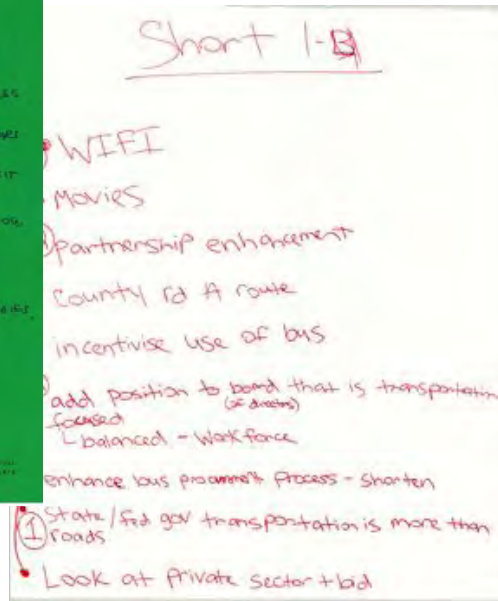 Short 1-B
WIFI
Movies
partnership enhancement
County rd A route
incentivise use of bus
add position to board that is transportatin
(of directors)
focused
balanced - Workforce
enhance bus process - shorten
State/fed gov transportation is more than
1 roads
Look at private sector + bid